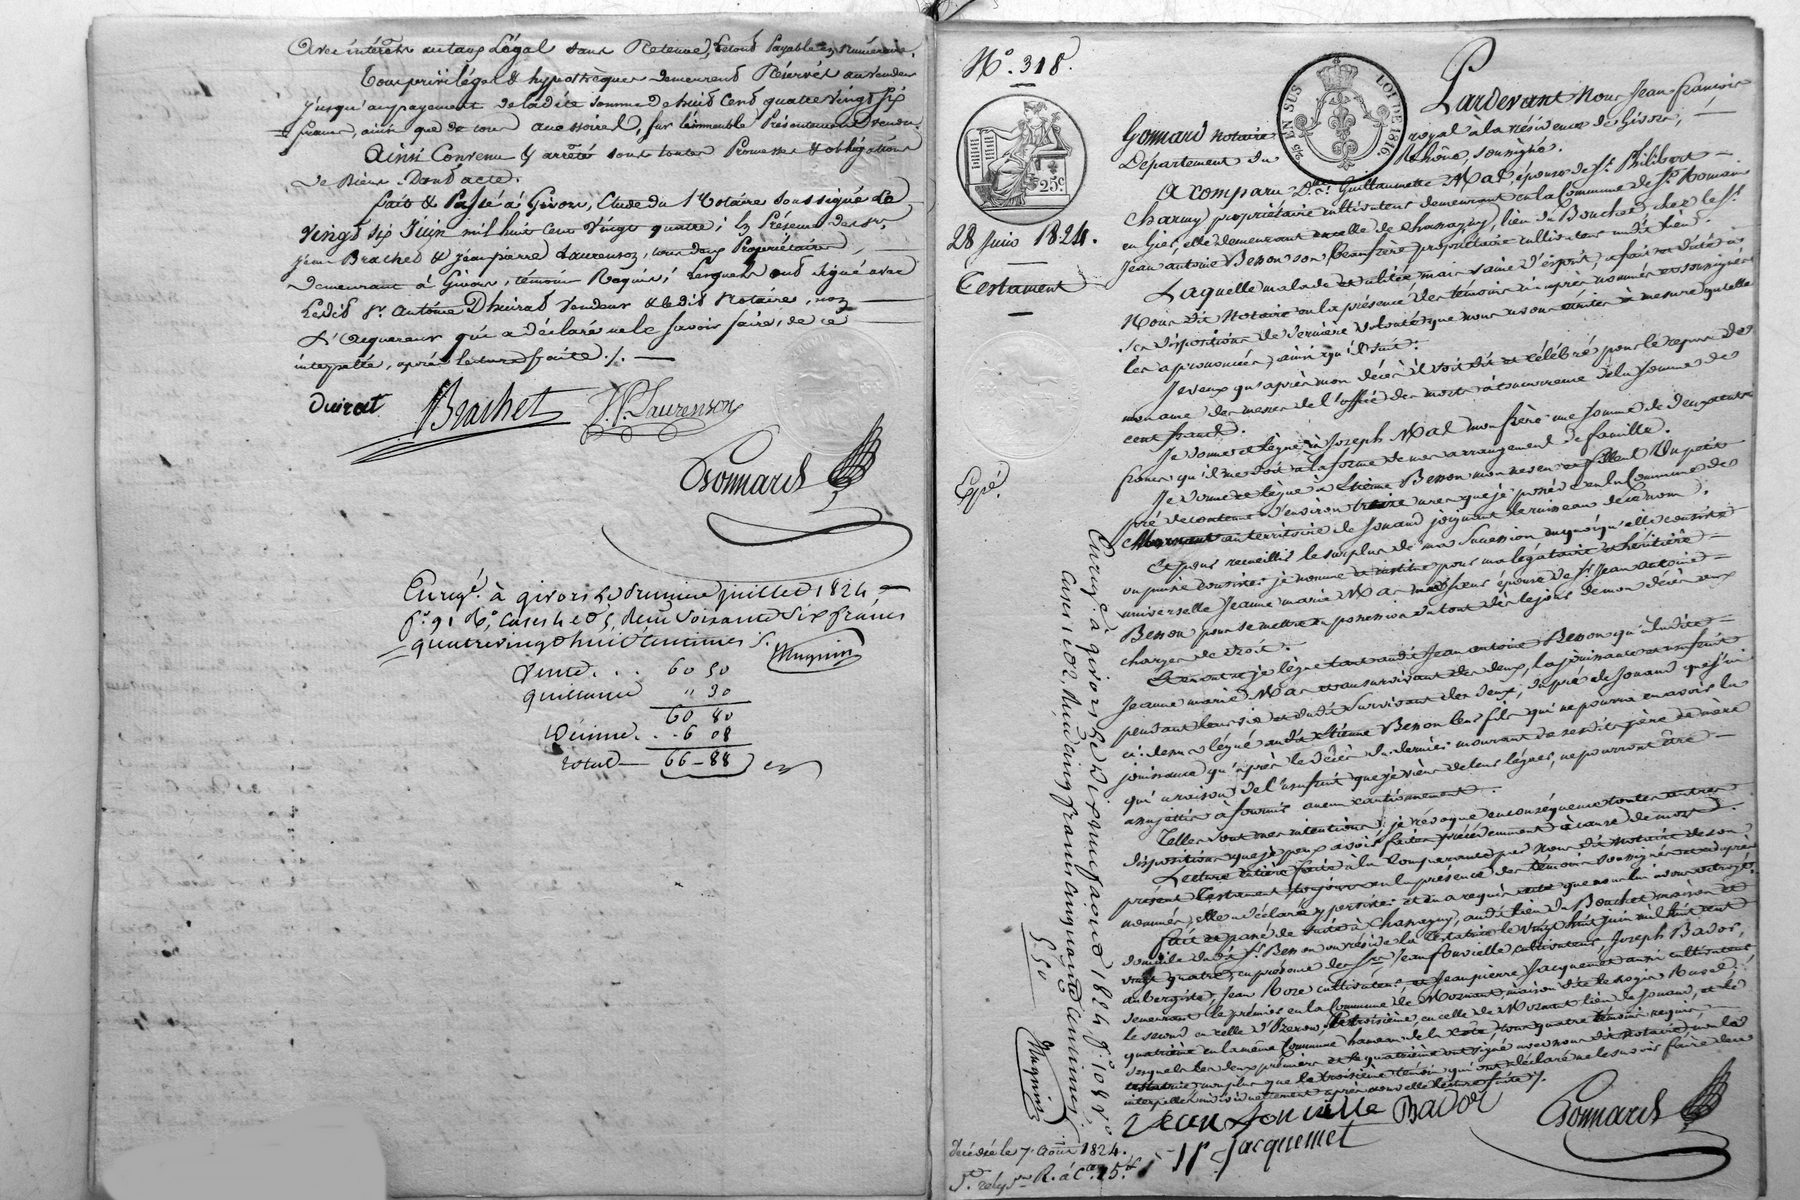 Avec intérêts au taux Légal sans Retenue, Letout Payable en Numéraire.
Tous privilèges & hypothèques demeurent Réservés au vendeur
jusqu'au payement de ladite somme de huit Cent quatre vingt six
francs, ainsi que de tous accessoires, sur l'immeuble Présentement vendu.
Ainsi Convenu & arrêté sous toutes Promesses & obligations
de Biens. Dont acte.
fait & Passé à Givors, Etude du Notaire soussigné Le
Vingt six Juin mil huit Cent Vingt quatre; En Présence des Srs
Jean Brachet & Jeanpierre Laurenson, tous deux Propriétaires,
demeurant à Givors, témoins Requis; Lesquels ont signé avec
Ledit Sr. Antoine Dhuirat Vendeur & ledit Notaire, non
L'acquéreur qui a déclaré ne le savoir faire, de ce
interpellé, après lecture faite ./.
Duirat Brachet J. P. Laurenson
Gonnard
Enregé. à givors le premier juillet 1824
fo. 91 Ro. Cases 4 et 5, Reçu Soixante Six francs
quatrevingt huit Centimes
Mugnier
Vente . . . 60 50
quittance " 30
60 80
Dixime . . 6 08
total 66-88
No. 318.
EN SUS
LOI DE 1816
25
25c
Pardevant Nous Jean François
Gonnard Notaire royal à la résidence de Givors,
Département du Rhône, soussigné.
28 Juin 1824.
Testament
A comparu De. Guillaumette Mas, épouse de Sr. Philibert
Charmy propriétaire cultivateur demeurant en la Commune de St. Romain
en Gier, elle demeurant en celle de Chassagny, lieu du Bouchet chez le Sr.
Jean antoine Besson son beaufrère propriétaire cultivateur audit lieu.
Laquelle malade et alitée, mais saine d'esprit, a fait et dicté à
Nous dit Notaire en la présence des témoins ci après nommés et soussignés
ses dispositions de dernière volonté que nous avons écrites à mesure qu'elle
les a prononcées, ainsi qu'il suit.
Je veux qu'après mon décès il soit dit et célébré pour le repos de
mon ame des messes de l'office des morts à concurrence de la somme de
cent francs.
Je donne et lègue à Joseph Mas mon frère une somme de deux cents
francs qu'il me doit à la forme de nos arrangement de famille.
Je donne et lègue à Etienne Besson mon neveu et filleul Un petit
pré de contenue d'environ treize ares que je possède en la Commune de
Mornant au territoire de Jouand joignant le ruisseau de ce nom.
Et pour recueillir le surplus de ma succession en quoi qu'elle consiste
ou puisse consister je nomme et institue pour ma légataire et héritière
universelle Jeanne marie Mas ma soeur épouse de Sr. Jean Antoine
Besson pour se mettre en possession du tout dès le jour de mon décès aux
charges de droit.
Et en outre je lègue tant audit Jean antoine Besson qu'à ladite
Jeanne marie Mas et au survivant des deux, la jouissance et usufruit
pendant leur vie et du dit Survivant des deux, du pré de Jouand que j'ai
ci-dessus légué audit Etienne Besson leur fils qui ne pourra en avoir la
jouissance qu'après le décès du dernier mourant de sesdits père et mère
qui à raison de l'usufruit que je viens de leur léguer, ne pourront être
assujettis à fournir aucun cautionnement.
Telles sont mes intentions; je révoque en conséquence toutes autres
dispositions que je peux avoir faites précédemment à cause de mort.
Lecture entière faite à la Comparante par Nous dit Notaire de son
présent testament toujours en la présence des témoins soussignés et ci après
nommés, elle a déclaré y persister et en a requis acte que nous lui avons octroyé.
fait et passé de suite à Chassagny, audit lieu du Bouchet maison et
domicile dudit Sr. Besson où réside la testatrice le vingt huit juin mil huit cent
vingt quatre, en présence des Srs. Jean fonvielle cultivateur, Joseph Bador,
aubergiste, Jean Roze cultivateur, et Jeanpierre Jacquemet aussi cultivateur
demeurant le premier en la Commune de Mornant, maison dite le logis Rusel,
le second en celle d'Orienas, le troisième en celle de Mornant lieu de Jouand, et le
quatrième en la même Commune hameau de la côte, tous quatre témoins requis
desquels les deux premiers et le quatrième ont signé avec nous dit notaire, non la
testatrice non plus que le troisième témoin qui ont déclaré ne le savoir faire de ce
interpellés individuellement après nouvelle lecture faite ./.
Jean fonvielle Bador Gonnard
J P Jacquemet
Expé.
Enregé. à givors le Dix neuf aout 1824 fo. 108 Vo.
Cases 1 et 2, Reçu cinq francs cinquante centimes.
5. 50
Mugnier
Décédée le 7. Août 1824.